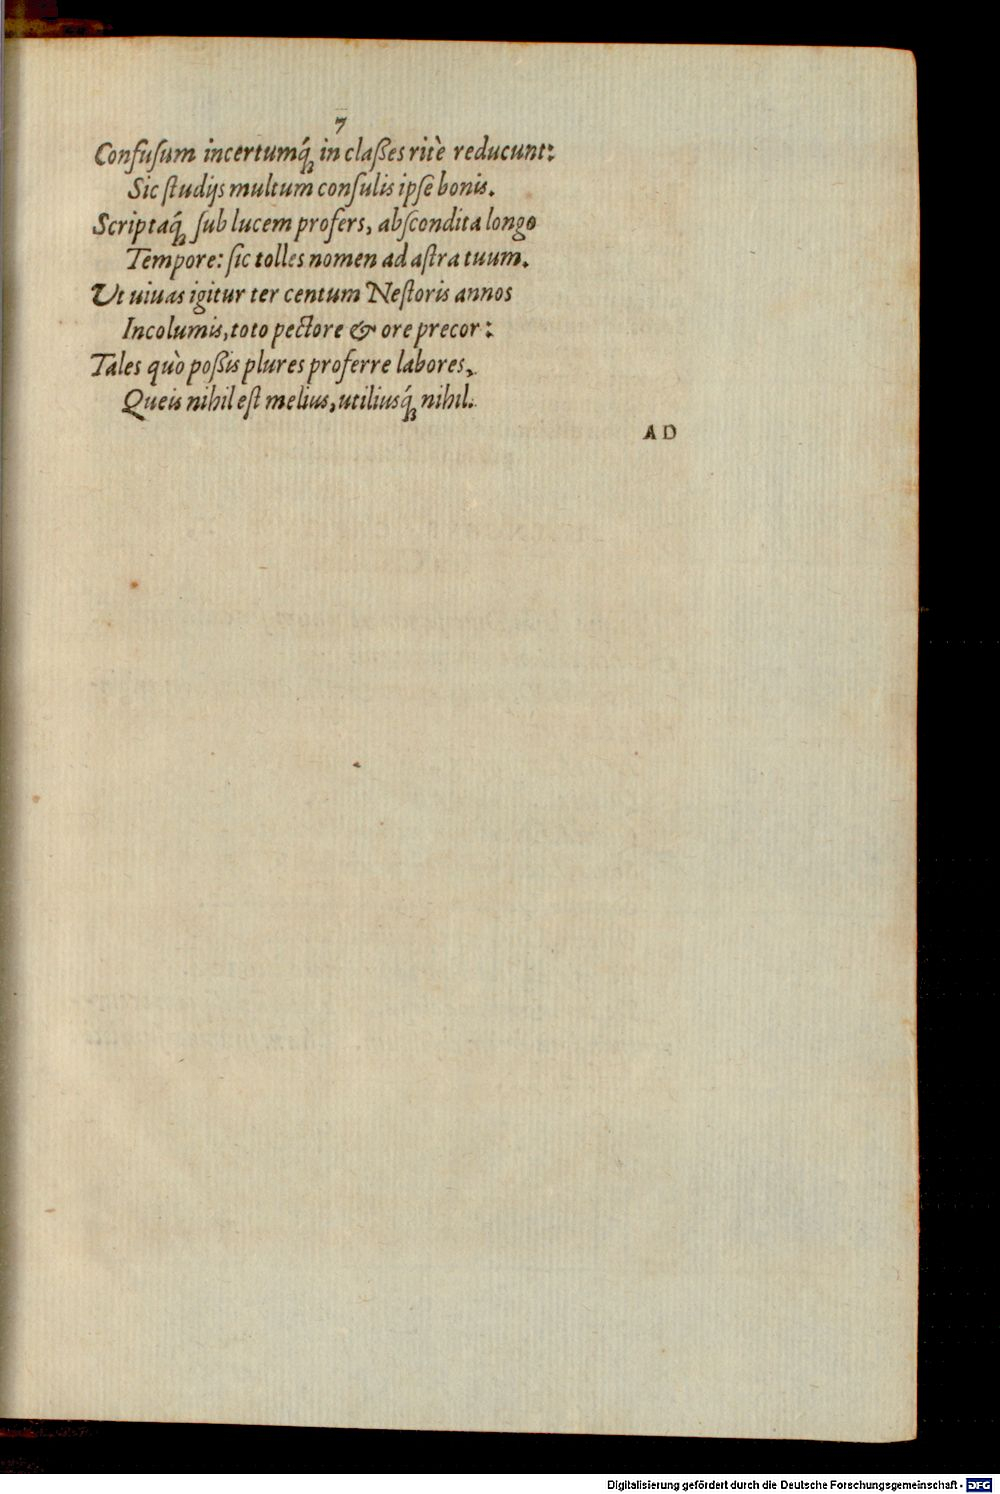 7
Confuſum incertumq́; in claßes ritè reducunt:
Sic ſtudijs multum conſulis ipſe bonis.
Scriptaq́; ſub lucem profers, abſcondita longo
Tempore: ſic tolles nomen ad aſtra tuum.
Ut uiuas igitur ter centum Neſtoris annos
Incolumis, toto pectore & ore precor:
Tales quò poßis plures proferre labores,
Queis nihil eſt melius, utiliusq́; nihil.
AD
Digitalisierung gefördert durch die Deutsche Forschungsgemeinschaft - DFG